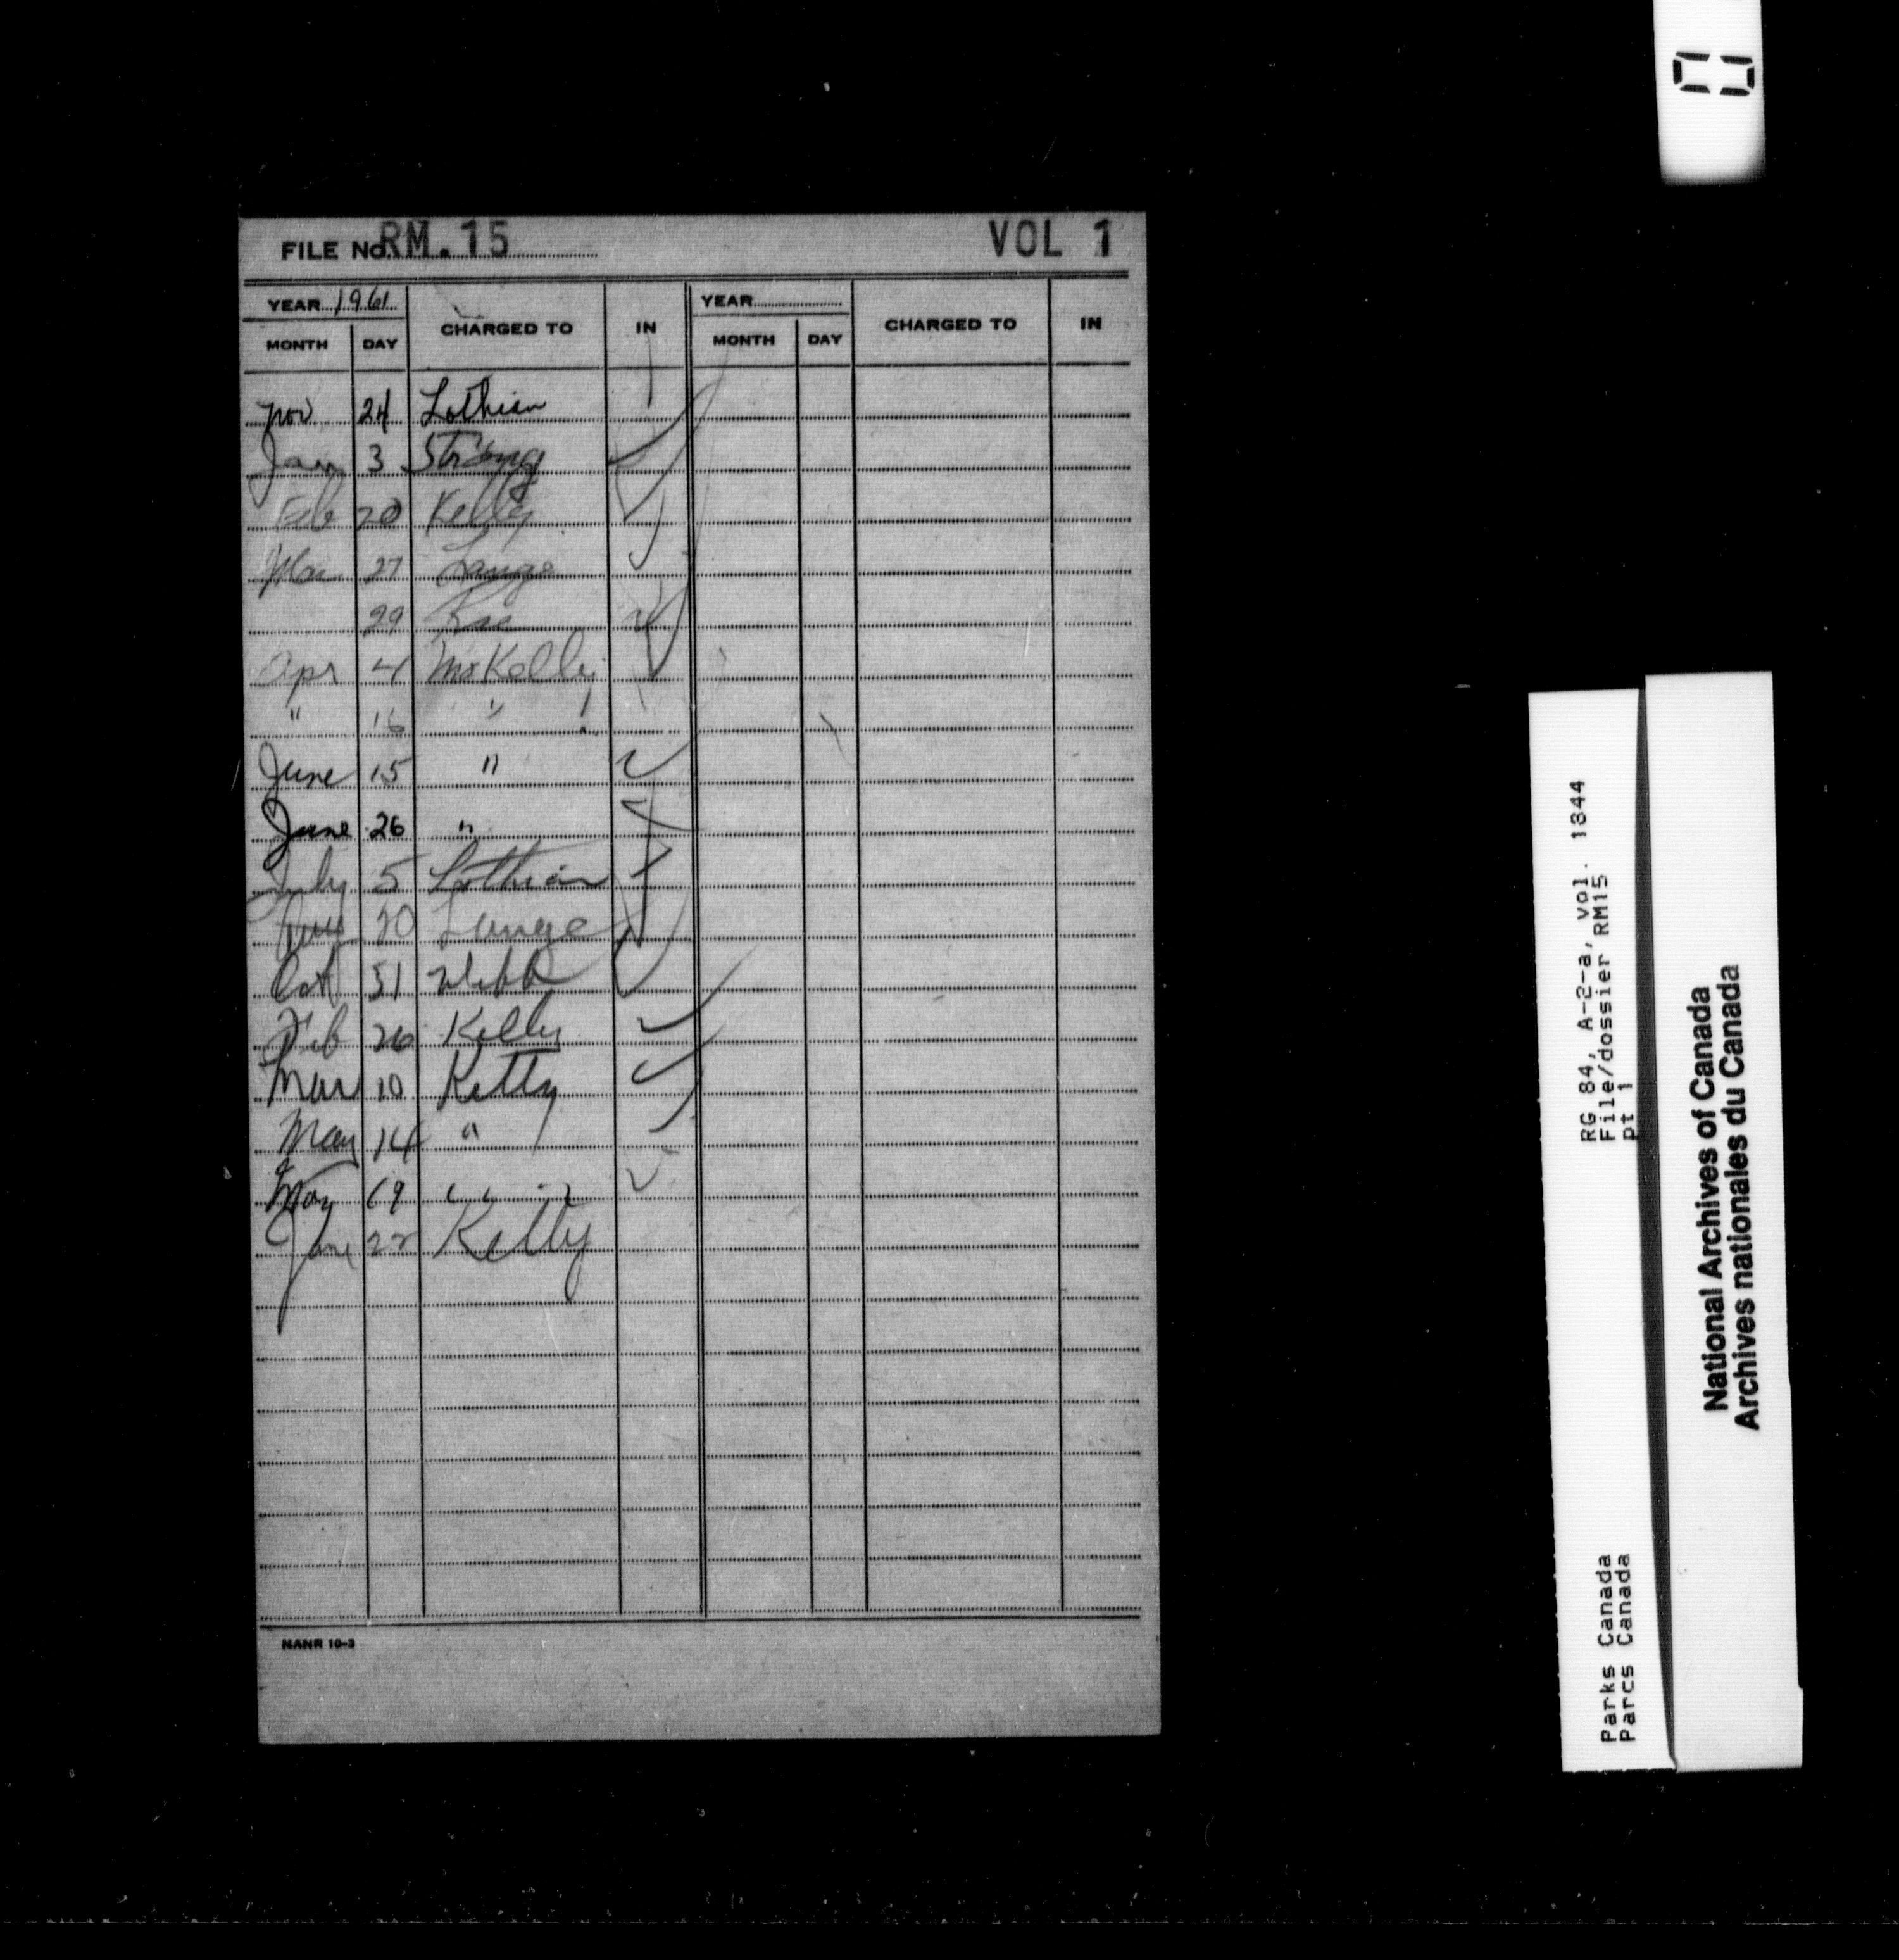 FILE No. RM.15 VOL 1
YEAR 1961 CHARGED TO IN YEAR CHARGED TO IN
MONTH DAY MONTH DAY
Nov 24 Lothian
Jan 3 Strong
Feb 20 Kelly
Mar 27 Lange
29 Rae
Apr 4 Mr Kelly
" 16 "
June 15 "
June 26 "
July 5 Lothian
Aug Lange
Oct 31 Webb
Feb 26 Kelly
Mar 10 Kelly
May 14 "
May 19 " "
June 22 Kelly
NANR 10-3
RG 84, A-2-a, vol. 1844
File/dossier RM15
pt 1
Parks Canada
Parcs Canada
National Archives of Canada
Archives nationales du Canada